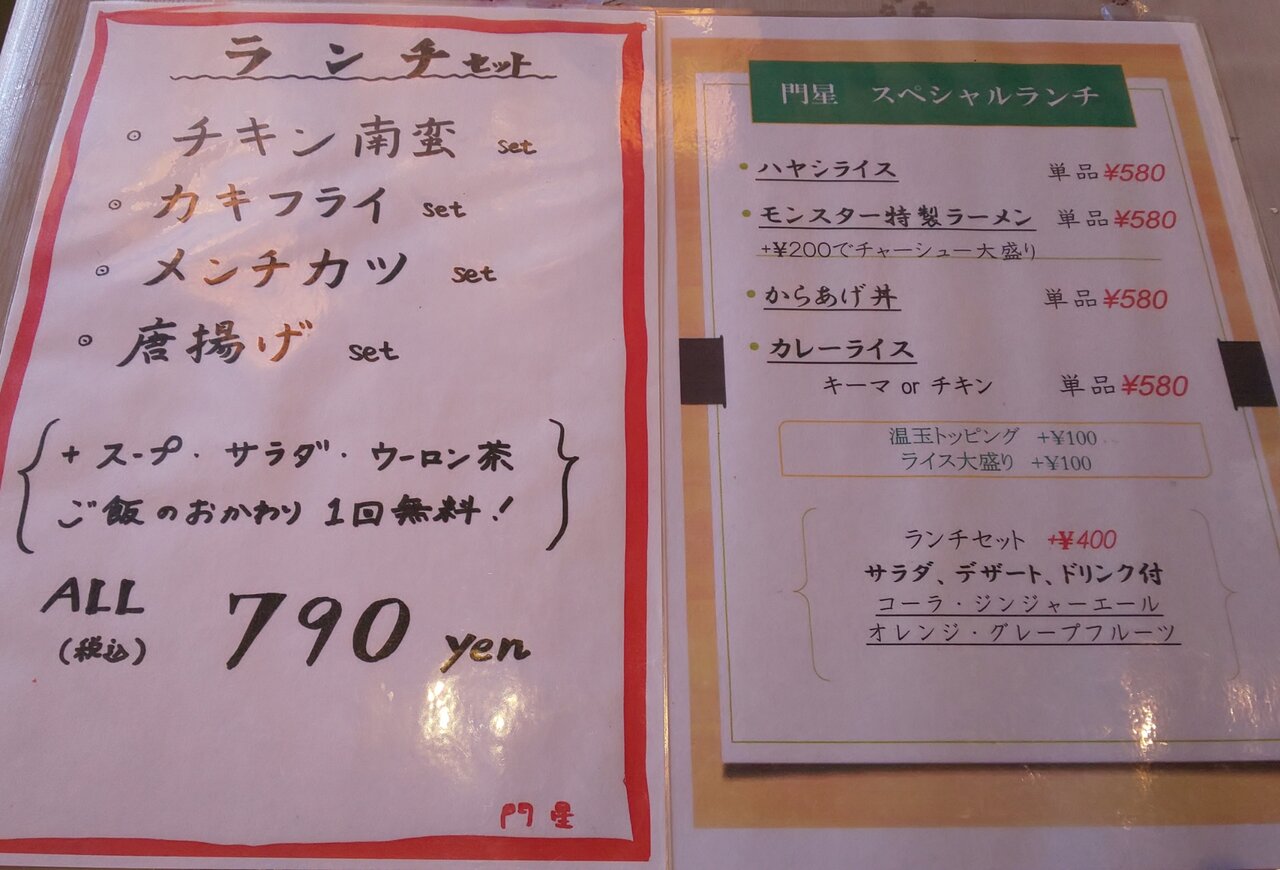 ランチセット
◎ チキン南蛮 set
◎ カキフライ set
◎ メンチカツ set
◎ 唐揚げ set
+ スープ・サラダ・ウーロン茶
ご飯のおかわり 1回無料!
ALL
(税込)
790 yen
門星
門星 スペシャルランチ
・ハヤシライス 単品¥580
・モンスター特製ラーメン 単品¥580
+¥200でチャーシュー大盛り
・からあげ丼 単品¥580
・カレーライス
キーマ or チキン 単品¥580
温玉トッピング +¥100
ライス大盛り +¥100
ランチセット +¥400
サラダ、デザート、ドリンク付
コーラ・ジンジャーエール
オレンジ・グレープフルーツ